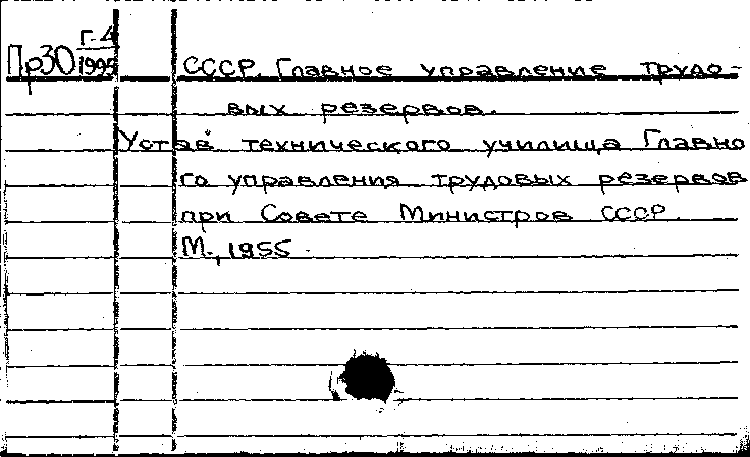 Пр30 Г-4/1995
СССР. Главное управление трудо-
вых резервов.
Устав технического училища Главно
го управления трудовых резервов
при Совете Министров СССР.
М., 1955.